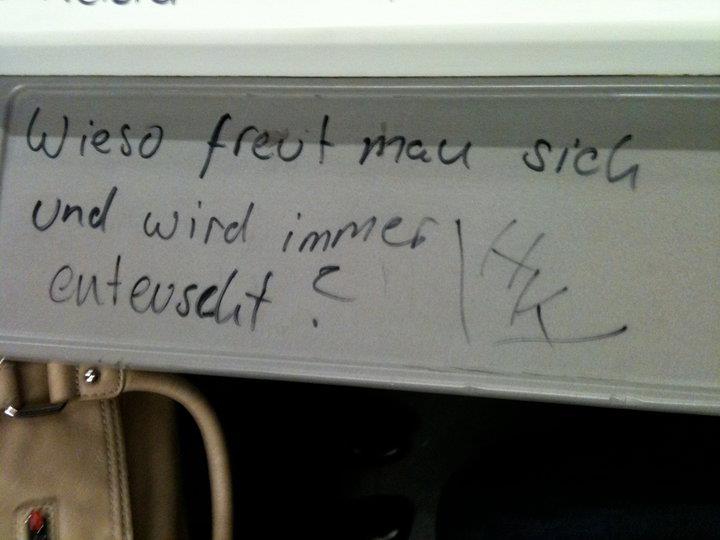 Wieso freut man sich
und wird immer
enteuscht?
HK